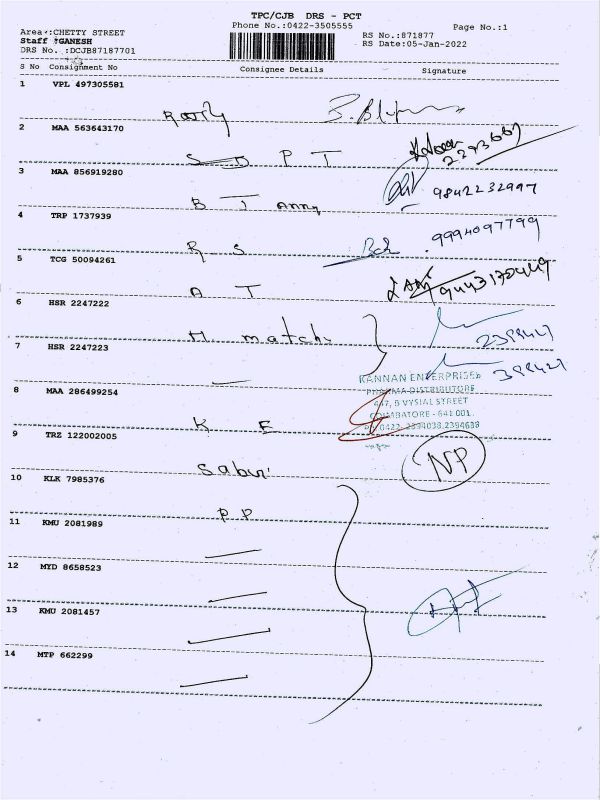 TPC/CJB DRS - PCT
Phone No.:0422-3505555
Page No.:1
Area :CHETTY STREET
Staff :GANESH
DRS No. :DCJB87187701
RS No.:871877
RS Date:05-Jan-2022
S No Consignment No Consignee Details Signature
1 VPL 497305581
2 MAA 563643170
S D P T
3 MAA 856919280
B J Anny 9842232997
4 TRP 1737939
R S 9994097799
5 TCG 50094261
A T
6 HSR 2247222
M. matchi
7 HSR 2247223
KANNAN ENTERPRISES
PHARMA DISTRIBUTORS
447, B VYSIAL STREET
COIMBATORE - 641 001.
8 MAA 286499254
K E
9 TRZ 122002005
Sabui NP
10 KLK 7985376
P P
11 KMU 2081989
12 MYD 8658523
13 KMU 2081457
14 MTP 662299